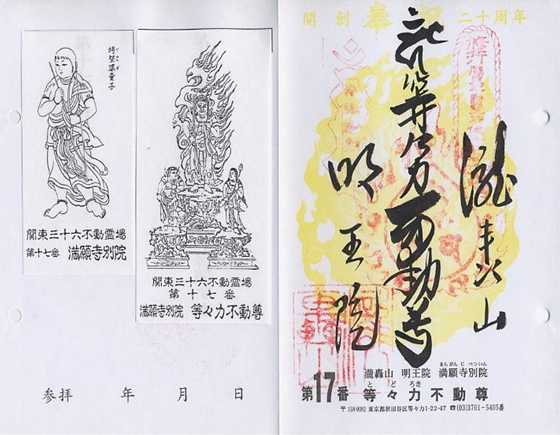 持堅婆童子
関東三十六不動霊場
第十七番 満願寺別院
関東三十六不動霊場
第十七番
満願寺別院 等々力不動尊
参拝 年 月 日
開創
二十周年
奉
瀧轟山
等々力不動尊
明王院
まんがんじべついん
瀧轟山 明王院 満願寺別院
とどろき
第17番 等々力不動尊
〒158-0082 東京都世田谷区等々力1-22-47 ☎(03)3701-5405番